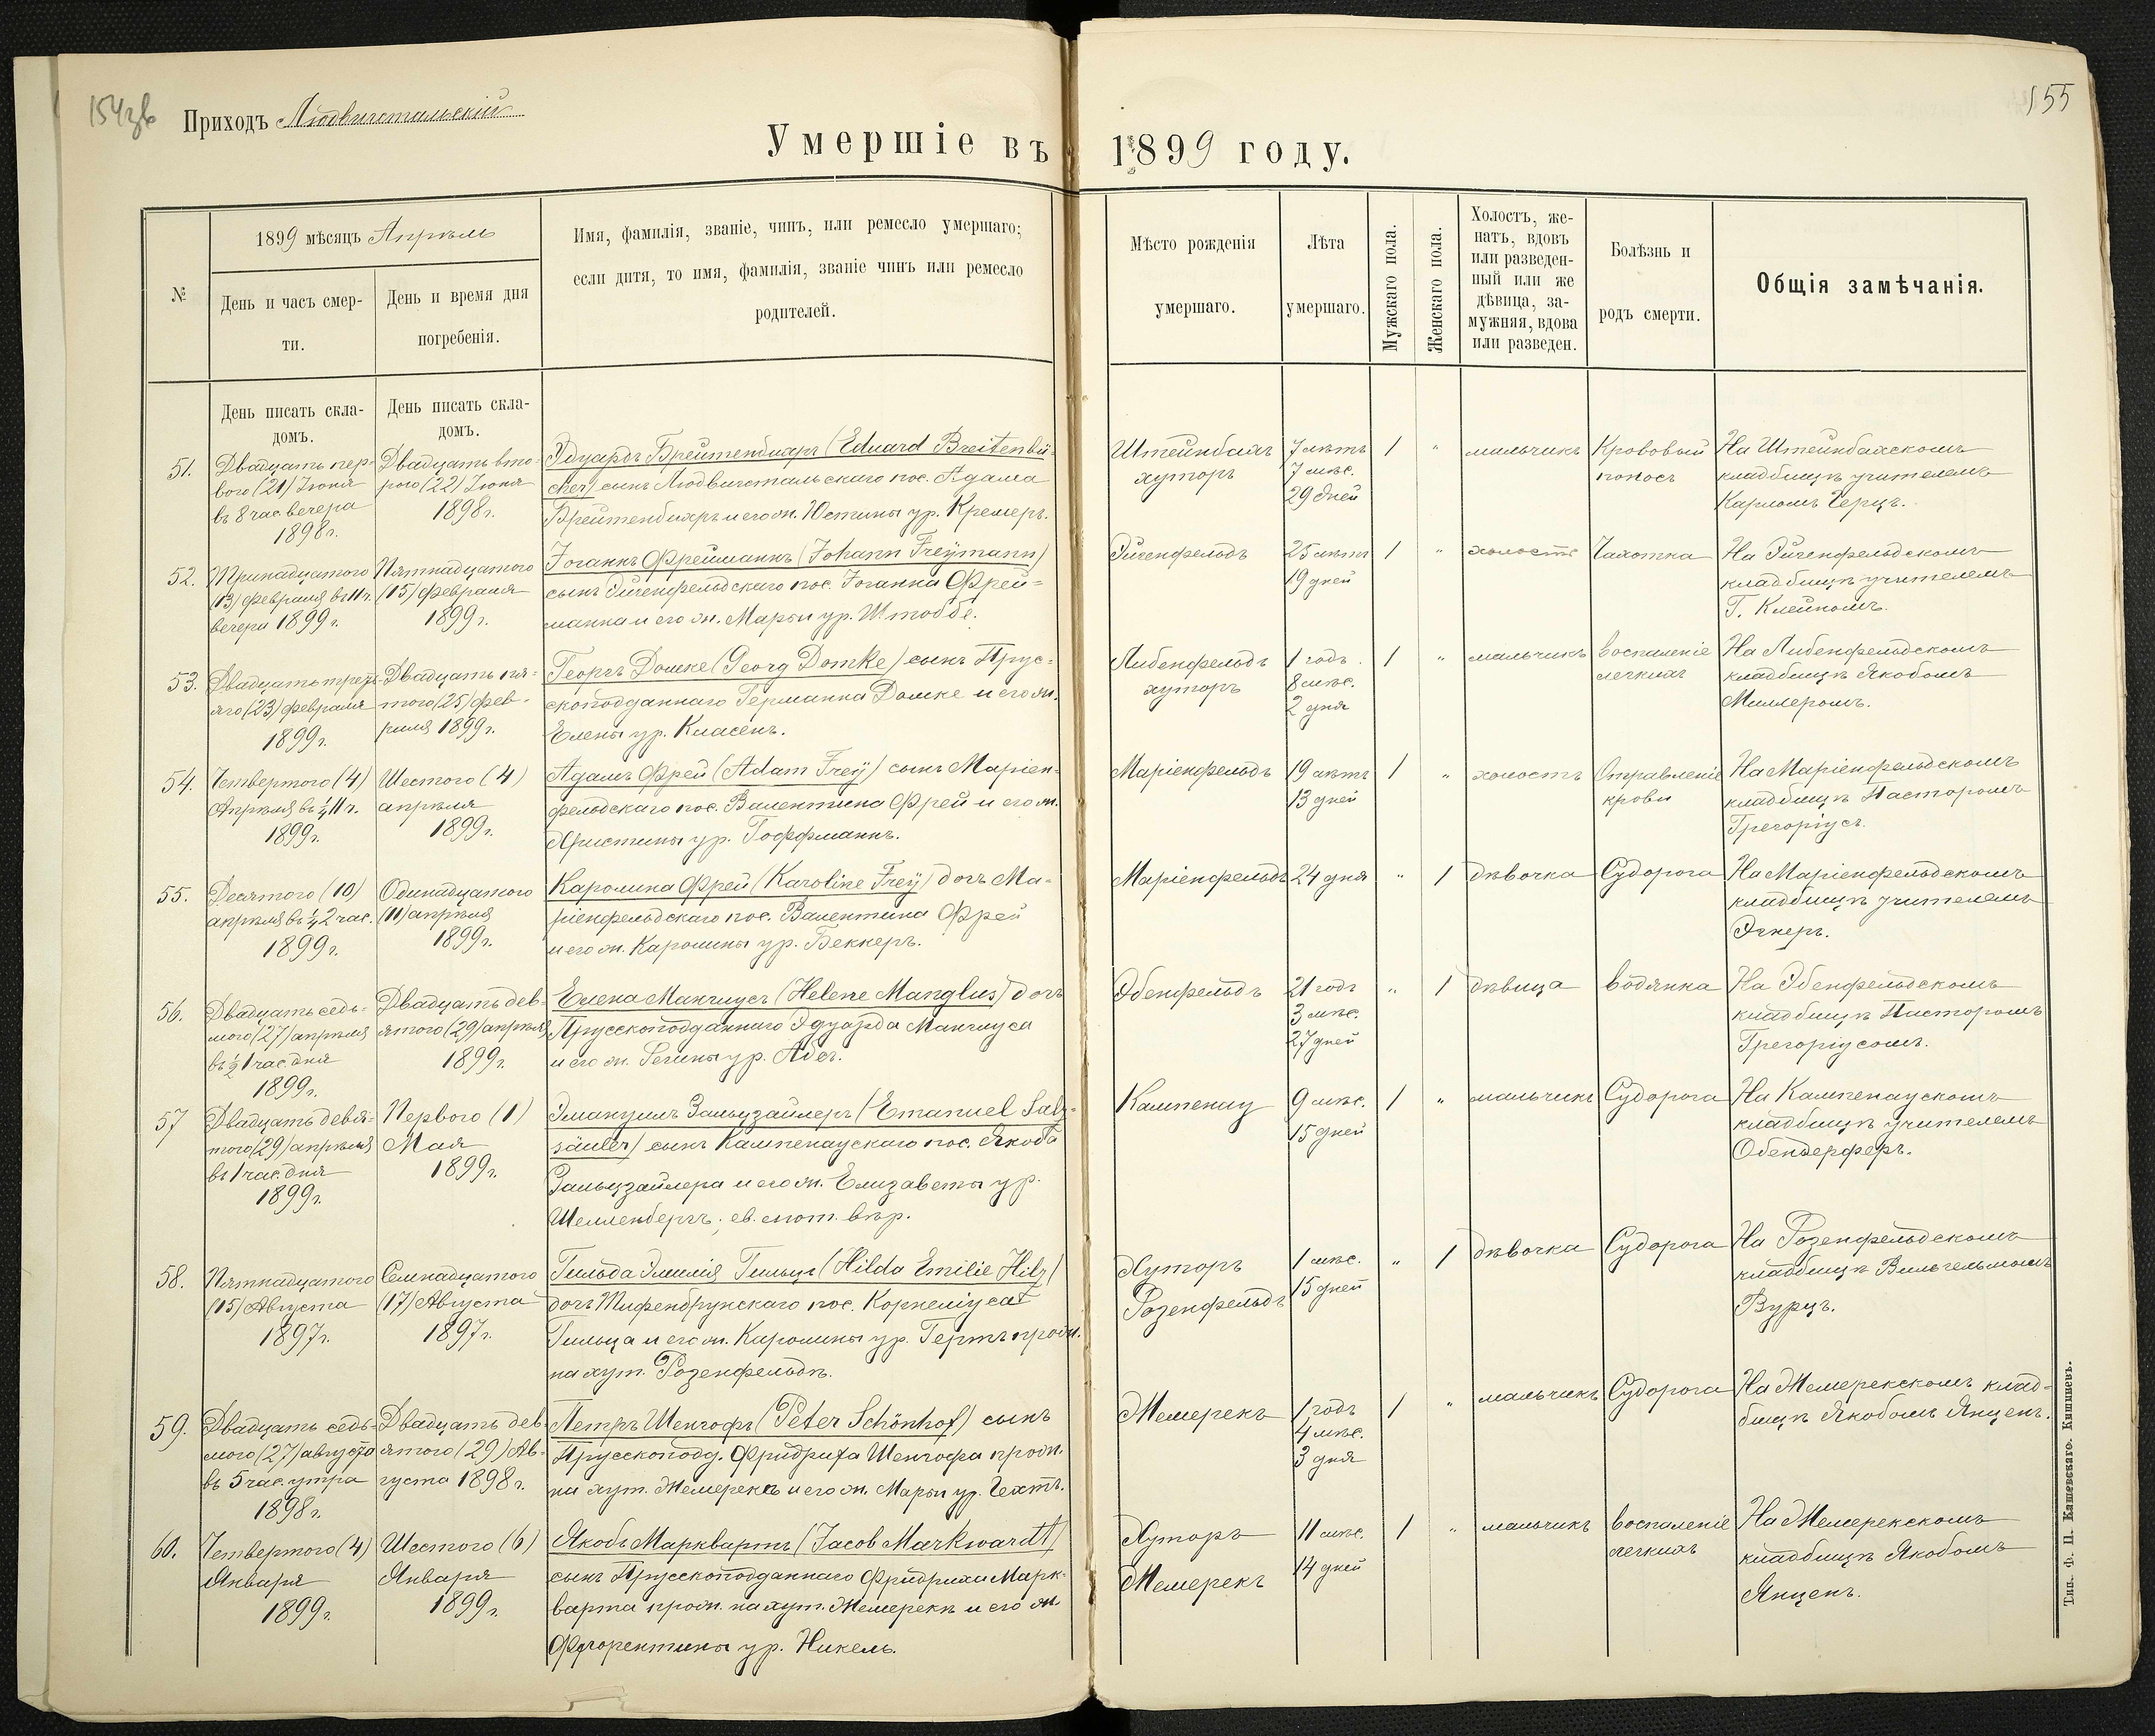 154зв
Приходъ Людвигстальскій
155
Умершіе въ 1899 году.
№
1899 мѣсяцъ Апрѣль
День и часъ смер-
ти.
День и время дня
погребенія.
Имя, фамилія, званіе, чинъ, или ремесло умершаго;
если дитя, то имя, фамилія, званіе чинъ или ремесло
родителей.
Мѣсто рожденія
умершаго.
Лѣта
умершаго.
Мужскаго пола.
Женскаго пола.
Холостъ, же-
натъ, вдовъ
или разведен-
ный или же
дѣвица, за-
мужняя, вдова
или разведен.
Болѣзнь и
родъ смерти.
Общія замѣчанія.
День писать скла-
домъ.
День писать скла-
домъ.
51.
Двадцать пер-
вого (21) Іюня
въ 8 час. вечера
1898 г.
Двадцать вто-
рого (22) Іюня
1898 г.
Эдуардъ Брейтенбихеръ (Eduard Breitenbü-
cher) сынъ Людвигстальскаго пос. Адама
Брейтенбихеръ и его ж. Юстины ур. Кремеръ.
Штейнбахъ
хуторъ
7 лѣтъ
7 мѣс.
29 дней
1
"
мальчикъ
Крововый
поносъ
На Штейнбахскомъ
кладбищѣ учителемъ
Карломъ Герцъ.
52.
Тринадцатого
(13) февраля въ 11 ч.
вечера 1899 г.
Пятнадцатого
(15) февраля
1899 г.
Іоганнъ Фрейманнъ (Johann Freÿmann)
сынъ Эйгенфельдскаго пос. Іоганна Фрей-
манна и его ж. Марьи ур. Штоббе.
Эйгенфельдъ
25 лѣтъ
19 дней
1
"
холостъ
Чахотка
На Эйгенфельдскомъ
кладбищѣ учителемъ
Г. Клейномъ.
53.
Двадцать треть-
яго (23) февраля
1899 г.
Двадцать пя-
того (25) фев-
раля 1899 г.
Георгъ Домке (Georg Domke) сынъ Прус-
скоподданнаго Германна Домке и его ж.
Елены ур. Класенъ.
Либенфельдъ
хуторъ
1 годъ
8 мѣс.
2 дня
1
"
мальчикъ
воспаленіе
легкихъ
На Либенфельдскомъ
кладбищѣ Якобомъ
Миллеромъ.
54.
Четвертого (4)
Апрѣля въ ½ 11 ч.
1899 г.
Шестого (4)
апрѣля
1899 г.
Адамъ Фрей (Adam Freÿ) сынъ Маріен-
фельдскаго пос. Валентина Фрей и его ж.
Христины ур. Гоффманнъ.
Маріенфельдъ
19 лѣтъ
13 дней
1
"
холостъ
Отравленіе
крови
На Маріенфельдскомъ
кладбищѣ Пасторомъ
Грегоріусъ.
55.
Десятого (10)
апрѣля въ ½ 2 час.
1899 г.
Одинадцатого
(11) апрѣля
1899 г.
Каролина Фрей (Karoline Freÿ) дочь Ма-
ріенфельдскаго пос. Валентина Фрей
и его ж. Каролины ур. Беккеръ.
Маріенфельдъ
24 дня
"
1
дѣвочка
Судорога
На Маріенфельдскомъ
кладбищѣ учителемъ
Эгнеръ.
56.
Двадцать седь-
мого (27) апрѣля
въ ½ 1 час. дня
1899 г.
Двадцать дев-
ятого (29) апрѣля
1899 г.
Елена Манглусъ (Helene Manglus) дочь
Прусскоподданнаго Эдуарда Манглуса
и его ж. Регины ур. Абег.
Эбенфельдъ
21 годъ
3 мѣс.
27 дней
"
1
дѣвица
водянка
На Эбенфельдскомъ
кладбищѣ Пасторомъ
Грегоріусомъ.
57
Двадцать девя-
того (29) апрѣля
въ 1 час. дня
1899 г.
Первого (1)
Мая
1899 г.
Эмануилъ Зальцзайлеръ (Emanuel Salz-
säuler) сынъ Кампенаускаго пос. Якоба
Зальцзайлера и его ж. Елизаветы ур.
Шелленбергъ; ев. лют. вѣр.
Кампенау
9 мѣс.
15 дней
1
"
мальчикъ
Судорога
На Кампенаускомъ
кладбищѣ учителемъ
Обендерферъ.
58.
Пятнадцатого
(15) Августа
1897 г.
Семнадцатого
(17) Августа
1897 г.
Гильда Эмилія Гильцъ (Hilda Emilie Hilz)
дочь Тифенбрунскаго пос. Корнеліуса
Гильца и его ж. Каролины ур. Гертъ прож.
на хут. Розенфельдъ.
Хуторъ
Розенфельдъ
1 мѣс.
15 дней
"
1
дѣвочка
Судорога
На Розенфельдскомъ
кладбищѣ Вильгельмомъ
Вурцъ.
59.
Двадцать седь-
мого (27) августа
въ 5 час. утра
1898 г.
Двадцать дев-
ятого (29) Ав-
густа 1898 г.
Петръ Шенгофъ (Peter Schönhof) сынъ
Прусскопод. Фридриха Шенгофа прож.
на хут. Жемерекъ и его ж. Марьи ур. Гехтъ.
Жемерекъ
1 годъ
4 мѣс.
3 дня
1
"
мальчикъ
Судорога
На Жемерекскомъ клад-
бищѣ Якобомъ Янценъ.
60.
Четвертого (4)
Января
1899 г.
Шестого (6)
Января
1899 г.
Якобъ Марквартъ (Jacob Markwardt)
сынъ Прусскоподданнаго Фридриха Марк-
варта прож. на хут. Жемерекъ и его ж.
Флорентины ур. Никель.
Хуторъ
Жемерекъ
11 мѣс.
14 дней
1
"
мальчикъ
воспаленіе
легкихъ
На Жемерекскомъ
кладбищѣ Якобомъ
Янценъ.
Тип. Ф. П. Кашевскаго. Кишиневъ.